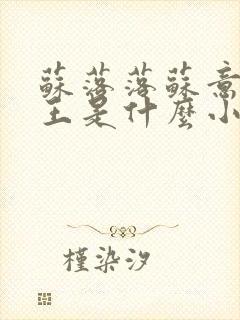 蘇落落蘇意
王是什麼小
槿染汐